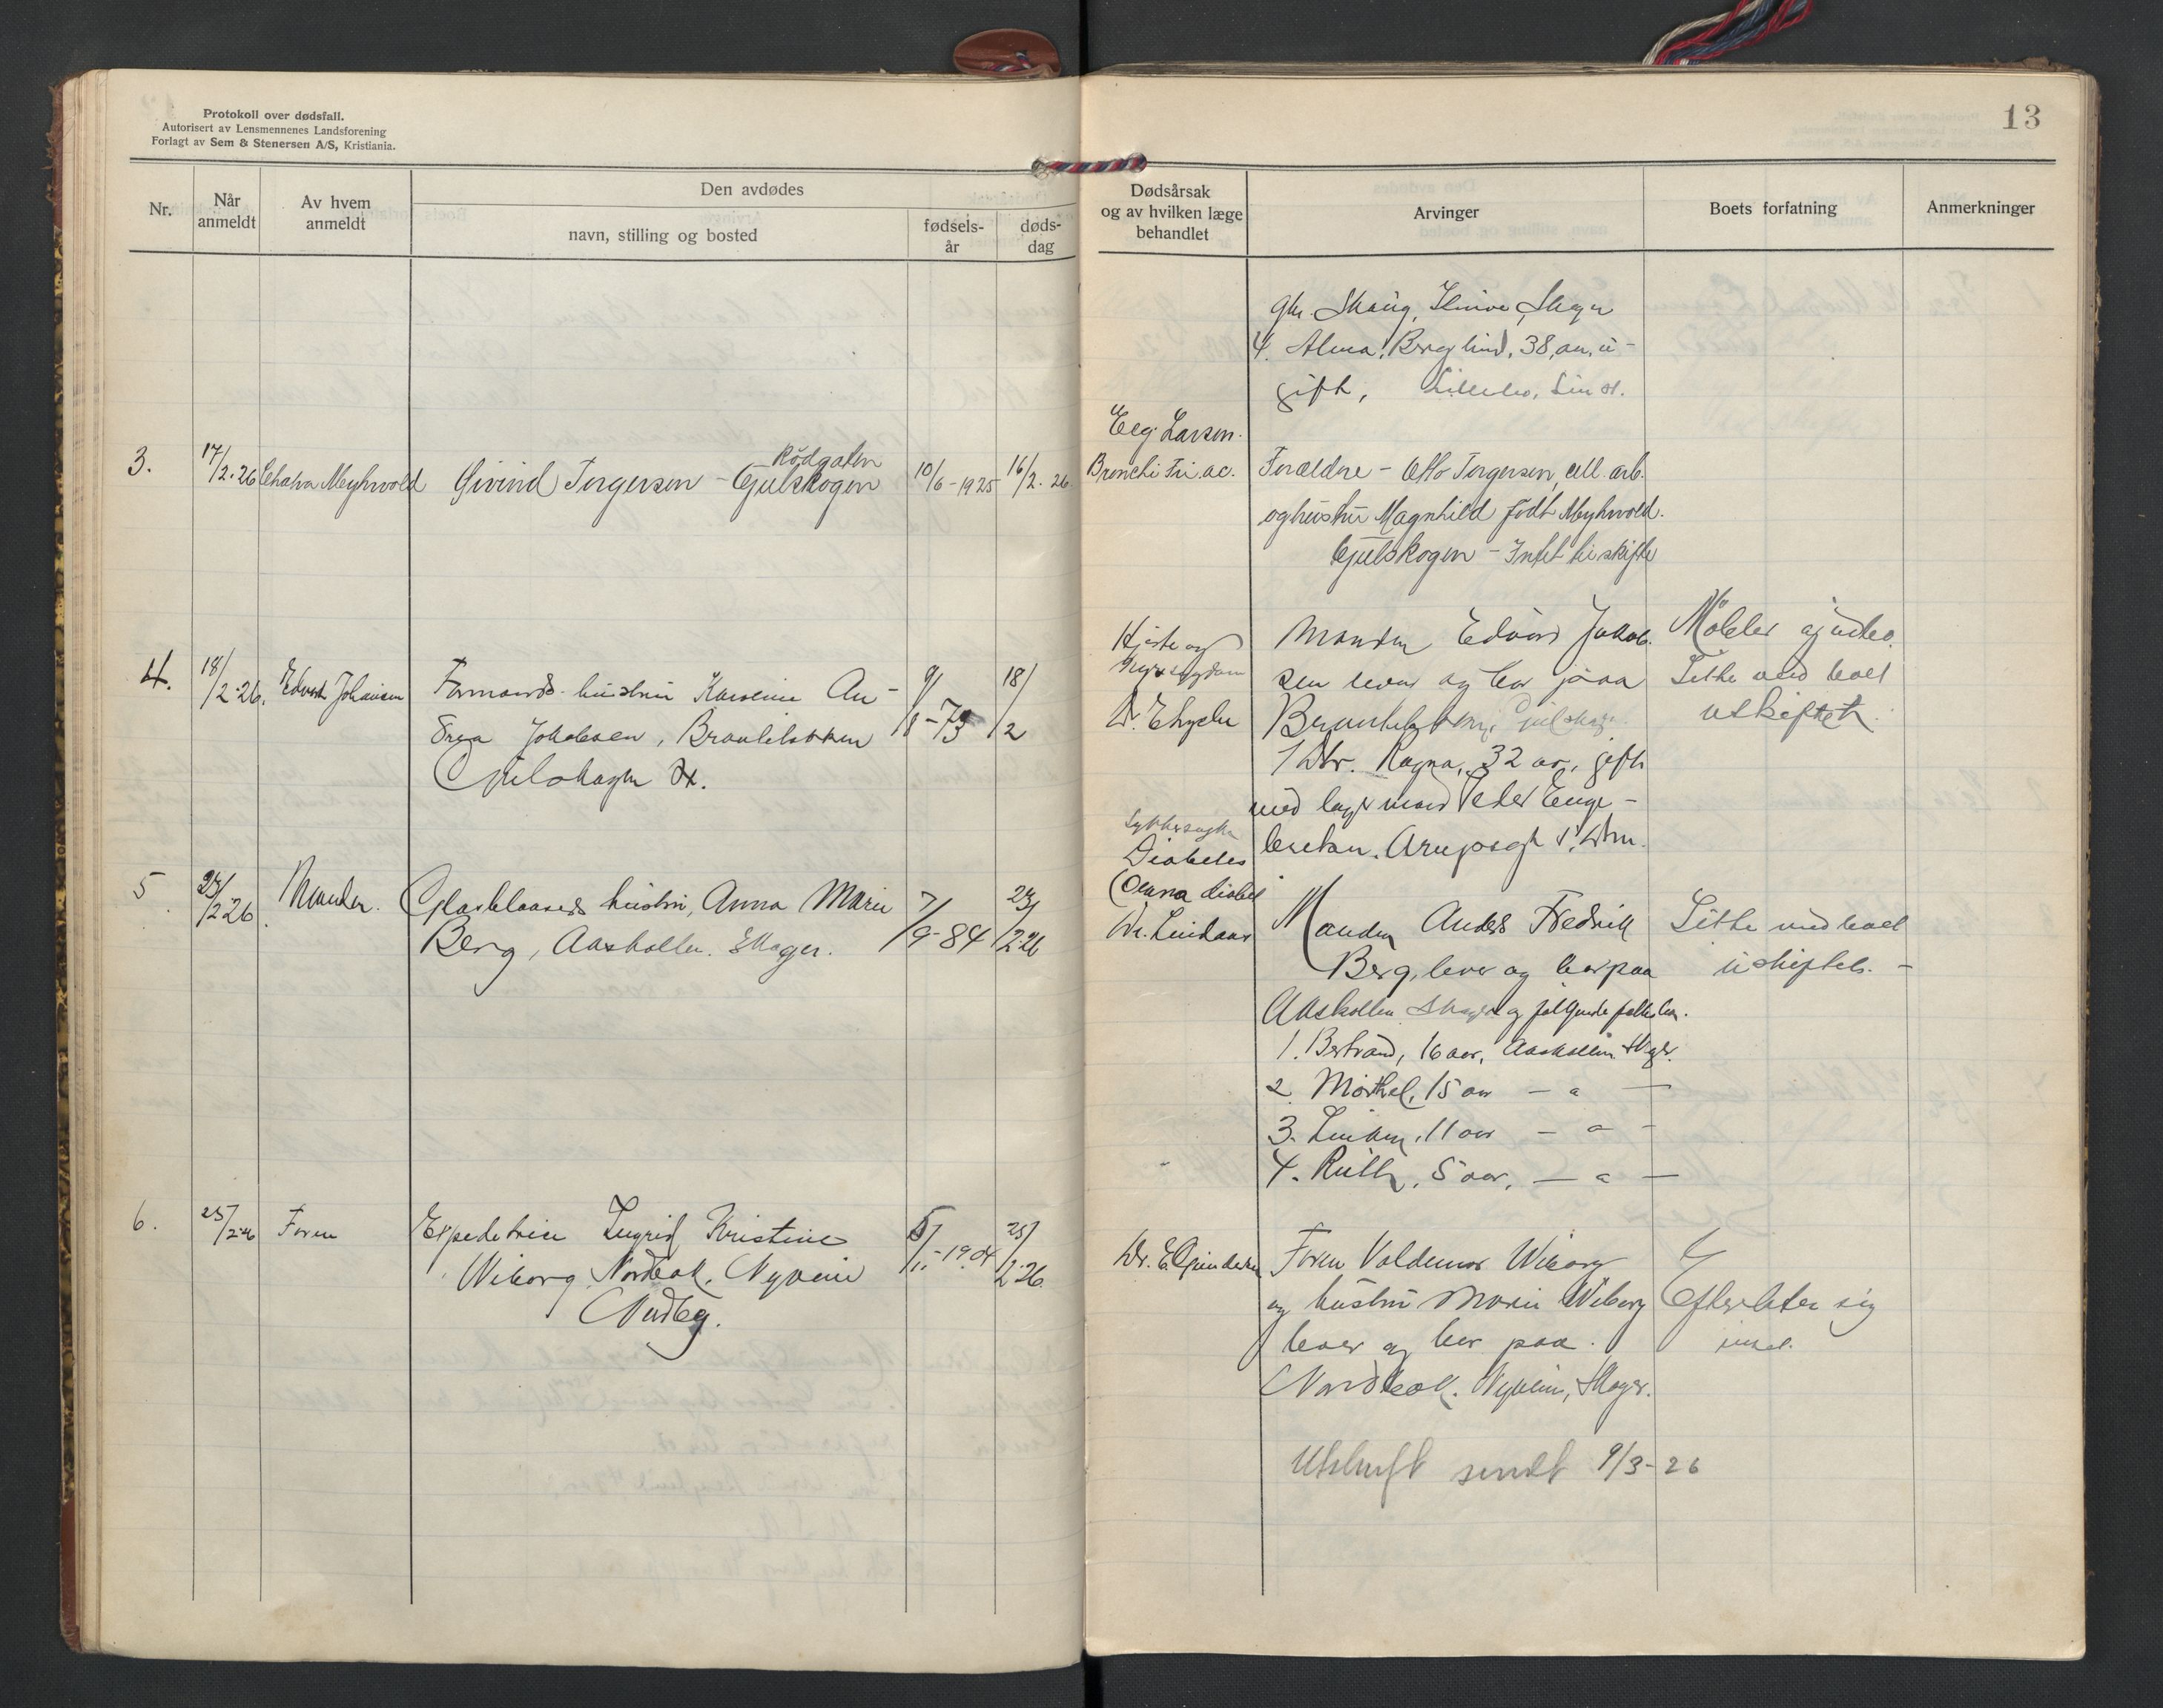 Protokoll over dødsfall.
Autorisert av Lensmennenes Landsforening
Forlagt av Sem & Stenersen A/S, Kristiania.
13
Nr.
Når anmeldt
Av hvem anmeldt
Den avdødes
navn, stilling og bosted
fødsels-
år
døds-
dag
Dødsårsak
og av hvilken læge
behandlet
Arvinger
Boets forfatning
Anmerkninger
Skaug, Skoger
4. Alma Berglund, 38 aar, u-
gift,
3.
17/2-26
Meyhwold
Rödgaten
Øivind Torgersen - Gulskogen
10/6-1925
16/2-26
Eeg Larsen.
Bronchitri ac.
Forældre - Otto Torgersen, cell. arb.
og hustru Magnhild født Meyhwold.
Gulskogen - Intet til skifte
4.
18/2-26.
Edvard Johansen
Formands hustru Karoline An-
drea Jakobsen, Brantelökken
Gulskogen
9/8-73
18/2
Hjerte og
nyresygdom
Manden Edvard Jakob-
sen lever og bor paa
Brantelökken, Gulskogen
1 Dtr. Ragna, 32 aar, gift
med lagermand Peder Enge-
bretsen.
Möbler og indbo.
Sitte med boet
uskiftet.
5.
23/2 26.
Manden.
Glasblaasers hustru, Anna Marie
Berg, Aaskollen. Skoger.
7/9-84
23/2-26
Sukkersyke
Diabetes
(Coma diabet
Dr. Lindaas
Manden Anders Fredrik
Berg, lever og bor paa
Aaskollen Skoger og følgende fællesbar.
1. Bertrand, 16 aar, Aaskollen Skoger.
2. 15 aar - " -
3. 11 aar - " -
4. Ruth, 5 aar, - " -
Sitte med boet
uskiftet. -
6.
25/2-26
Faren
Expeditrice Ingrid Kristine
Wiborg, Nordbak, Nyveien
6/11-1904
25/2-26.
Dr. E. Gundersen
Faren Valdemar Wiborg
og hustru Marie Wiborg
lever og bor paa
Nordbak. Nyveien, Skoger.
Efterlater sig
intet.
Utskrift sendt 9/3-26